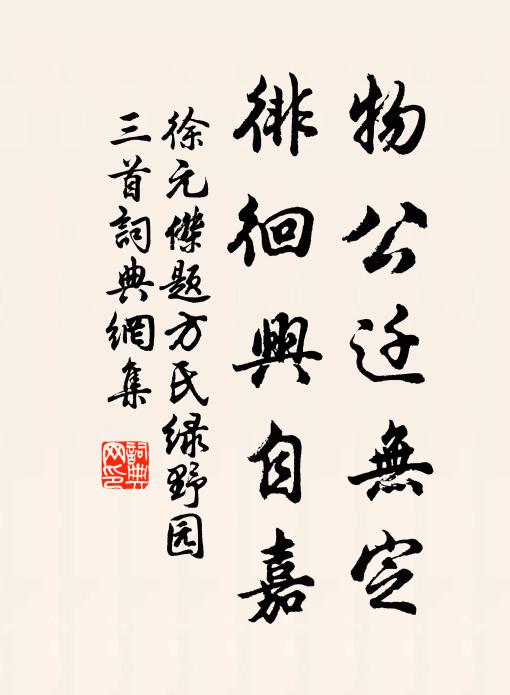 物公迁無定
徘徊興自嘉
徐元傑题方氏绿野园
三首詞典網集
詞典网印